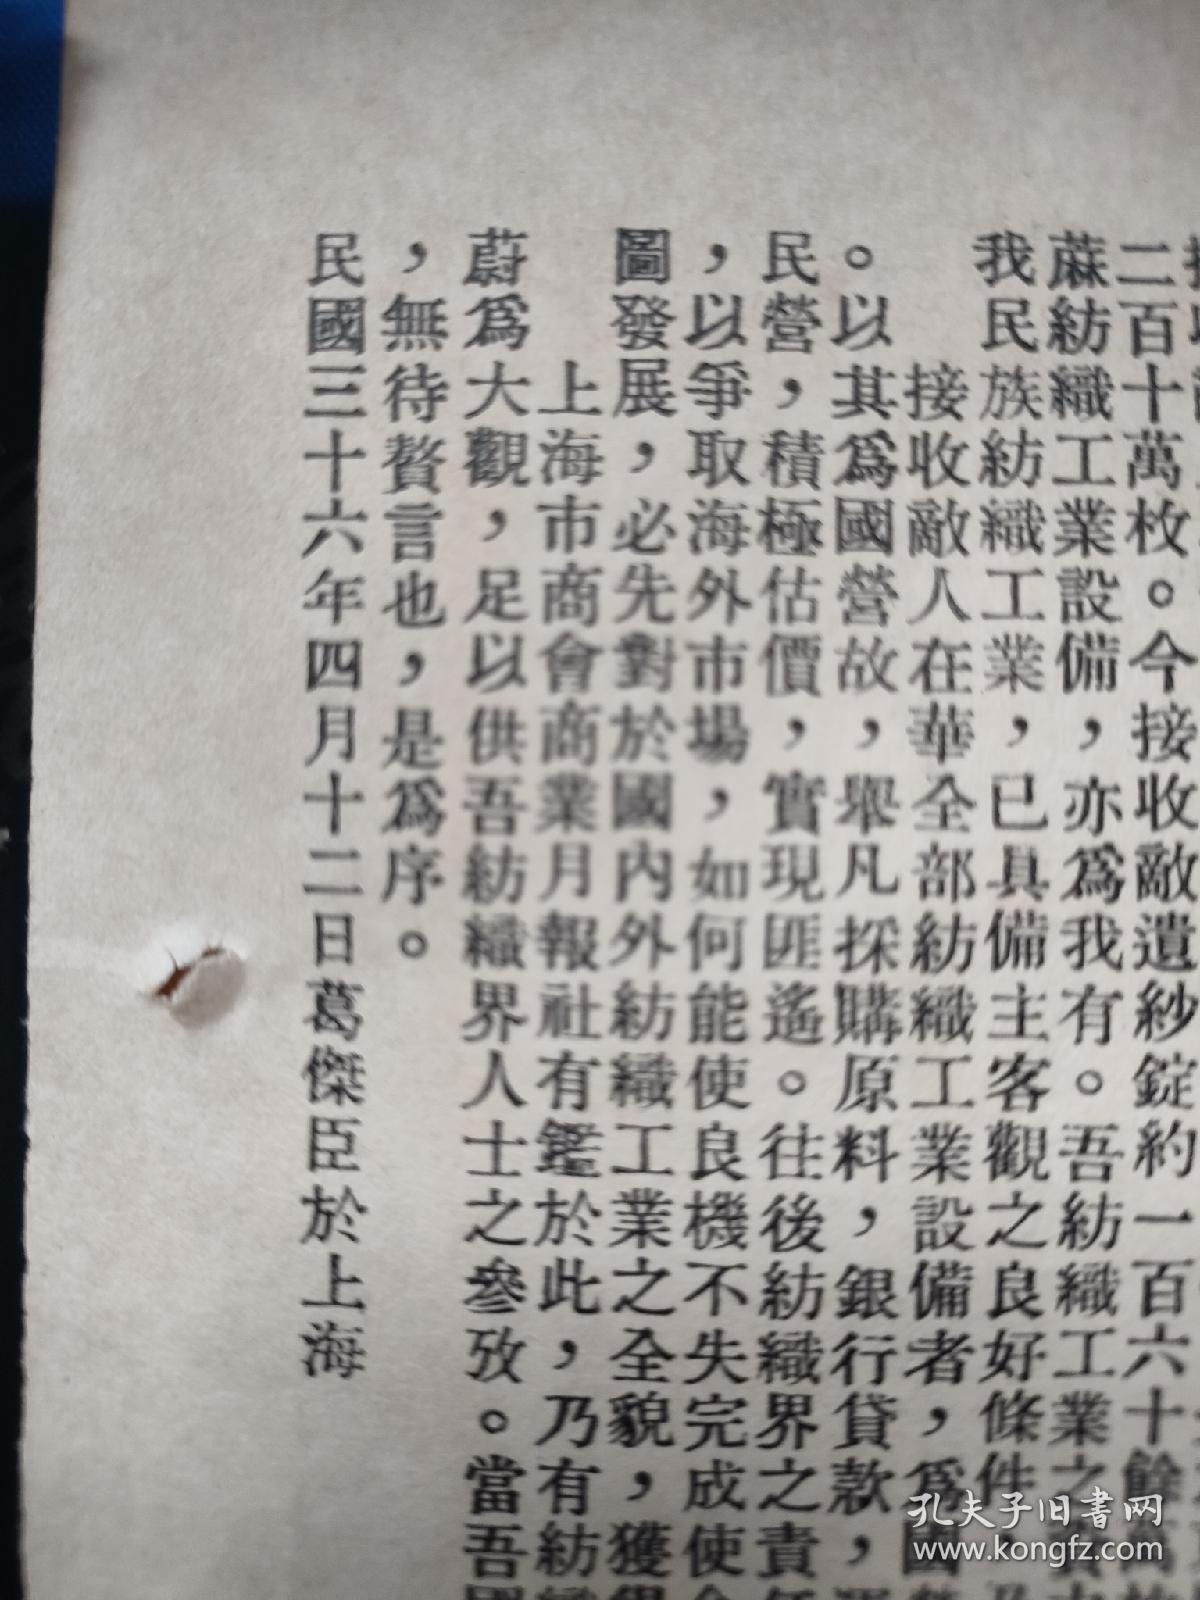 二百十萬枚。今接收敵遺紗錠約一百六十餘萬
蔴紡織工業設備，亦爲我有。吾紡織工業之
我民族紡織工業，已具備主客觀之良好條件，
接收敵人在華全部紡織工業設備者，爲國
。以其爲國營故，舉凡採購原料，銀行貸款，
民營，積極估價，實現匪遙。往後紡織界之責任
，以爭取海外市場，如何能使良機不失完成使
圖發展，必先對於國內外紡織工業之全貌，獲得
上海市商會商業月報社有鑑於此，乃有紡織
蔚爲大觀，足以供吾紡織界人士之參攷。當吾國
，無待贅言也，是爲序。
民國三十六年四月十二日葛傑臣於上海
孔夫子旧書网
www.kongfz.com